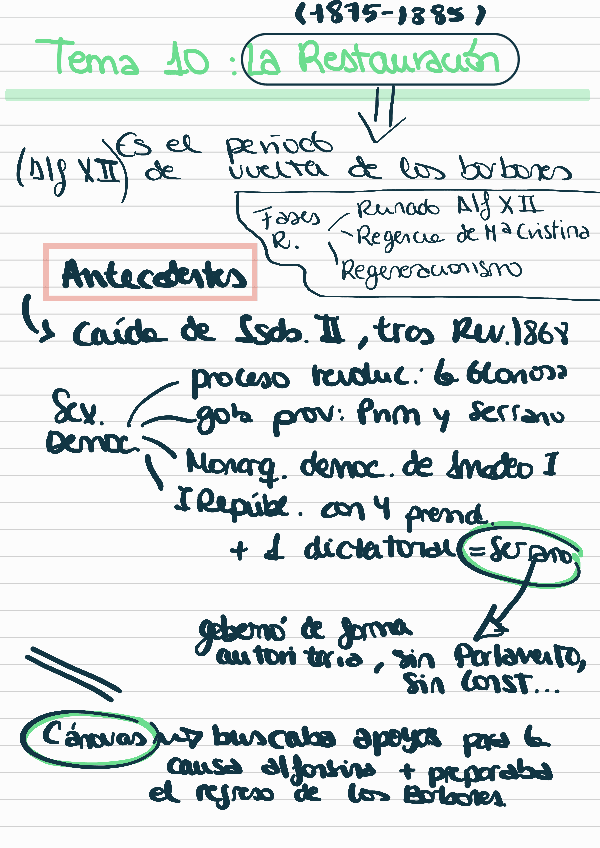 (1875-1885)
Tema 10: La Restauración
Es el periodo
(Alf XII) de vuelta de los borbones
Fases R.
Reinado Alf XII
Regencia de Mª Cristina
Regeneracionismo
Antecedentes
Caída de Isab. II, tras Rev. 1868
Sex. Democ.
proceso revoluc.: la Gloriosa
gob prov: Prim y Serrano
Monarq. democ. de Amadeo I
I Repúbl. con 4 presid.
+ 1 dictatorial = Serrano
gobernó de forma
autoritaria, sin Parlamento,
sin Const...
Cánovas buscaba apoyos para la
causa alfonsina + preparaba
el regreso de los Borbones